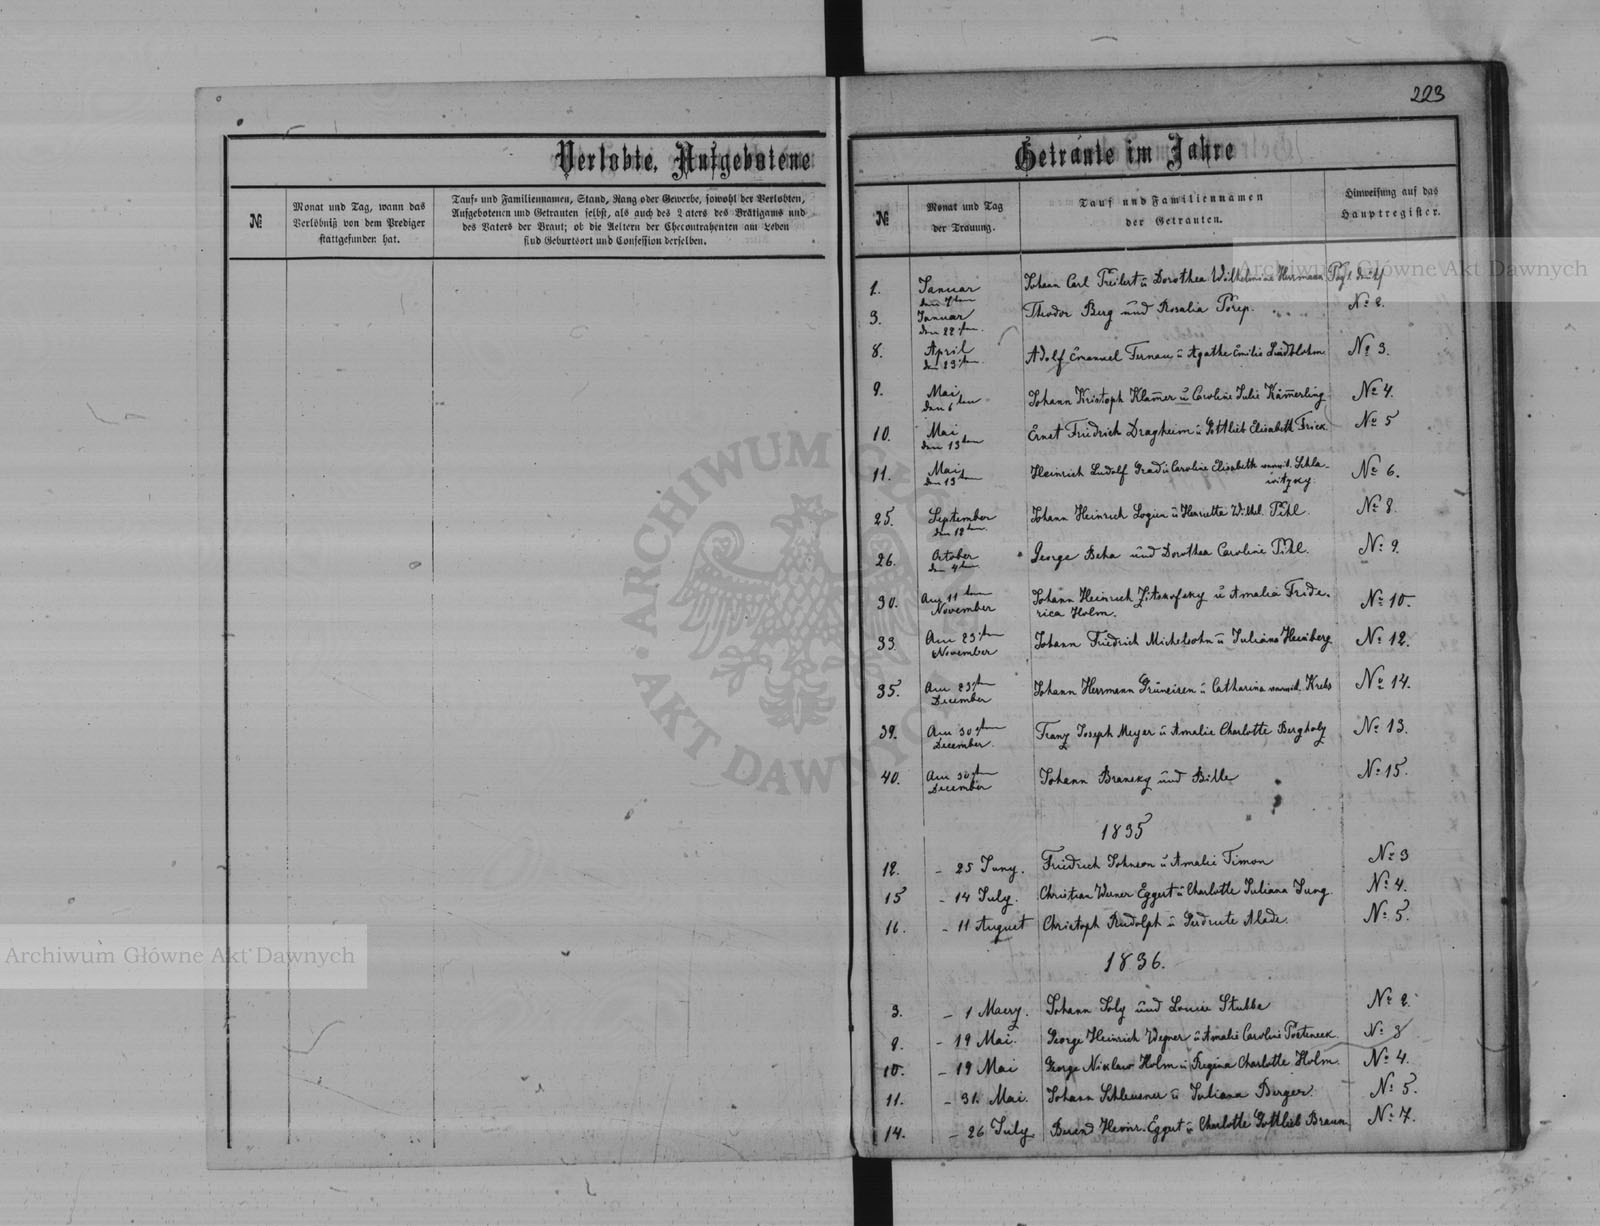 223
Verlobte, Aufgebotene
№
Monat und Tag, wann das
Verlöbniß von dem Prediger
stattgefunden hat.
Tauf- und Familiennamen, Stand, Rang oder Gewerbe, sowohl der Verlobten,
Aufgebotenen und Getrauten selbst, als auch des Vaters des Brätigams und
des Vaters der Braut; ob die Aeltern der Checontrahenten am Leben
sind Geburtsort und Confession derselben.
Getraute im Jahre
№
Monat und Tag
der Trauung.
Tauf und Familiennamen
der Getrauten.
Hinweisung auf das
Hauptregister.
1. Januar den 7ten Johann Carl Freilert u Dorothea Wilhelmine Herrmann
3. Januar den 22ten Theodor Berg und Rosalia Porep. № 2.
8. April den 23ten Adolf Emanuel Fernau u Agathe Emilie Lindblohm № 3.
9. Mai den 6ten Johann Kristoph Klam̅er u Caroline Julie Käm̅erling № 4.
10. Mai den 13ten Ernst Friedrich Dragheim u Gottlieb Elisabeth Frick № 5
11. Mai den 13ten Heinrich Ludolf Grad u Caroline Elisabeth verwit. Schla-
witzky № 6.
25. September den 12ten Johann Heinrich Logien u Henriette Wilhl. Pihl. № 8.
26. October den 4ten George Beha und Dorothea Caroline Pihl. № 9.
30. Am 11ten November Johann Heinrich Zitkowsky u Amalia Fride-
rica Holm. № 10.
33. Am 23ten November Johann Friedrich Michelsohn u Juliana Heinberg № 12.
35. Am 23ten December Johann Herrmann Grüneisen u Catharina verwit. Krebs № 14.
39. Am 30ten December. Franz Joseph Meyer u Amalie Charlotte Bergholz № 13.
40. Am 30ten December Johann Bransky und Bille № 15.
1835
12. – 25 Juny. Friedrich Johnson u Amalie Timon № 3
15 – 14 July. Christian Werner Eggert u Charlotte Juliana Jung № 4.
16. – 11 August Christoph Rudolph u Gerdrute Alade. № 5.
1836.
3. – 1 Maerz. Johann Joly und Louise Stubbe № 2.
9. – 19 Mai. George Heinrich Wegner u Amalie Caroline Posteneck. № 3
10. – 19 Mai George Nicklaus Holm u Regina Charlotte Holm. № 4.
11. – 31. Mai. Johann Schleusner u Juliana Berger. № 5.
14. – 26 July Berend Heinr. Eggert u Charlotte Gottlieb Braun № 7.
Archiwum Główne Akt Dawnych
Archiwum Główne Akt Dawnych
ARCHIWUM GŁÓWNE
AKT DAWNYCH